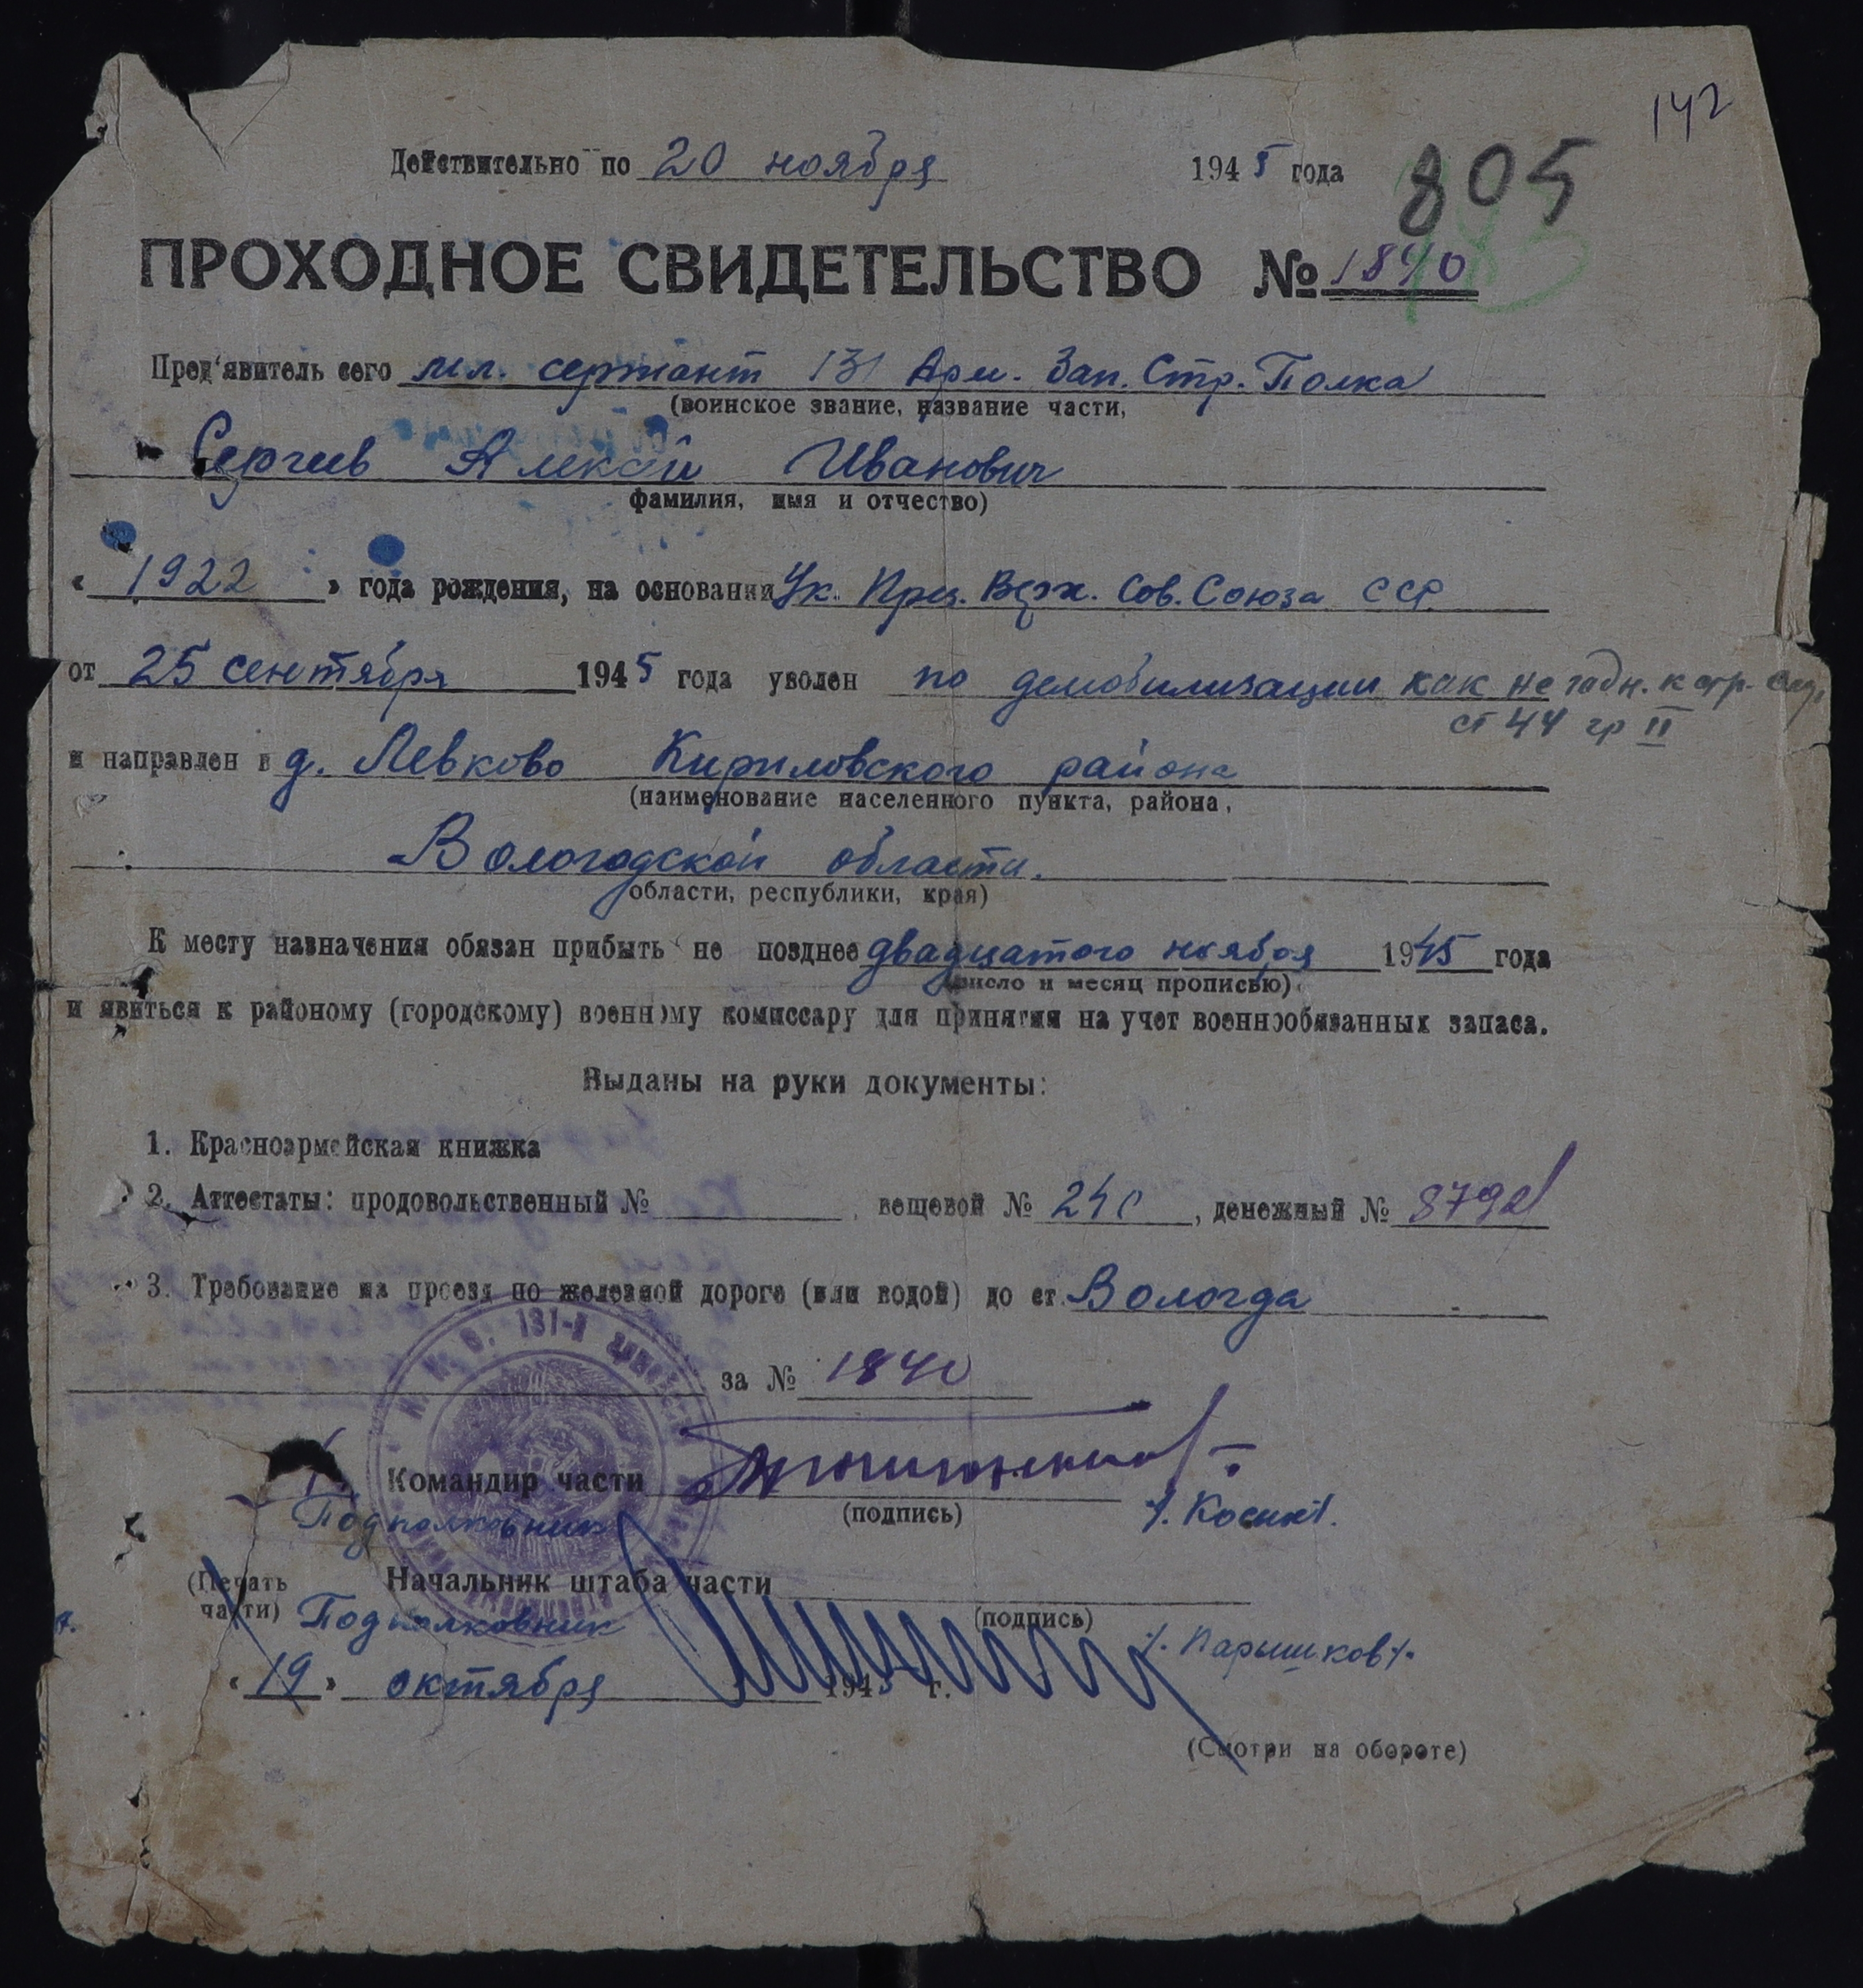 142
Действительно по 20 ноября 1945 года
805
ПРОХОДНОЕ СВИДЕТЕЛЬСТВО № 1840
Пред'явитель сего мл. сержант 131 Арм. Зап. Стр. Полка
(воинское звание, название части,
Сергеев Алексей Иванович
фамилия, имя и отчество)
« 1922 » года рождения, на основании Ук. През. Верх. Сов. Союза ССР
от 25 сентября 1945 года уволен по демобилизации как не годн. к стр. служ.
ст 44 гр II
и направлен в д. Левково Кириловского района
(наименование населенного пункта, района,
Вологодской области.
области, республики, края)
К месту назначения обязан прибыть не позднее двадцатого ноября 1945 года
(число и месяц прописью)
и явиться к районому (городскому) военному комиссару для принятия на учет военнообязанных запаса.
Выданы на руки документы:
1. Красноармейская книжка
2. Аттестаты: продовольственный № , вещевой № 240, денежный №
3. Требование на проезд по железной дороге (или водой) до ст. Вологда
за № 1840
Н. К. О. 131-й
Командир части
(подпись)
Подполковник /. Косик/.
Начальник штаба части
(Печать
части)
(подпись)
Подполковник /. Парышков/.
« 19 » октября 1945 г.
(Смотри на обороте)